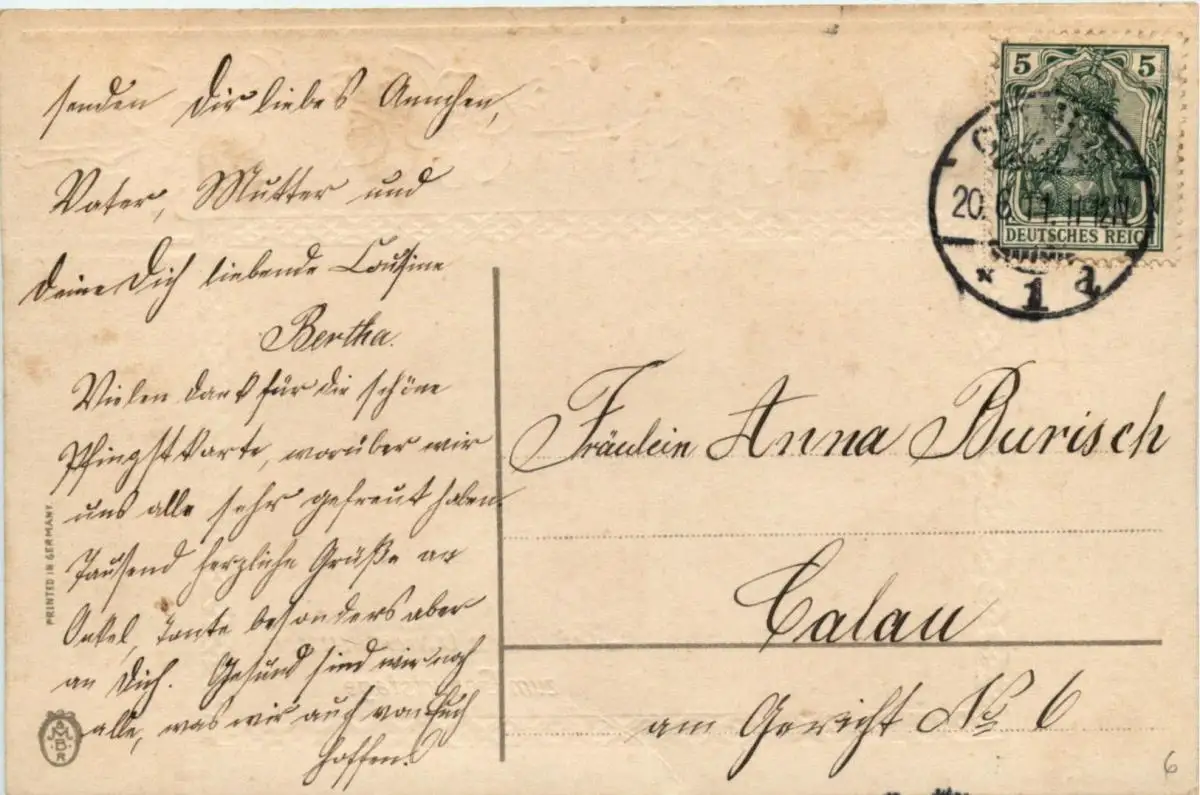 senden Dir liebes Annchen,
Vater, Mutter und
deine Dich liebende Cousine
Bertha.
Vielen Dank für die schöne
Pfingstkarte, worüber wir
uns alle sehr gefreut haben.
Tausend herzliche Grüße an
Onkel, Tante besonders aber
an Dich. Gesund sind wir noch
alle, was wir auch von Euch
hoffen.
PRINTED IN GERMANY.
5 5
DEUTSCHES REICH
20. 6. 11. 11-12 N.
* 1
Fräulein Anna Burisch
Calau
am Gericht No 6
6